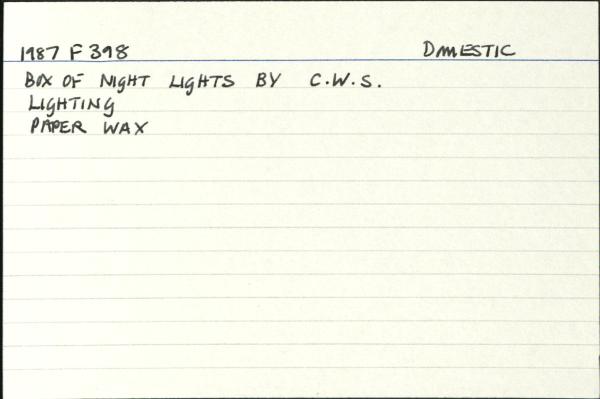 1987 F 398 DOMESTIC
BOX OF NIGHT LIGHTS BY C.W.S.
LIGHTING
PAPER WAX